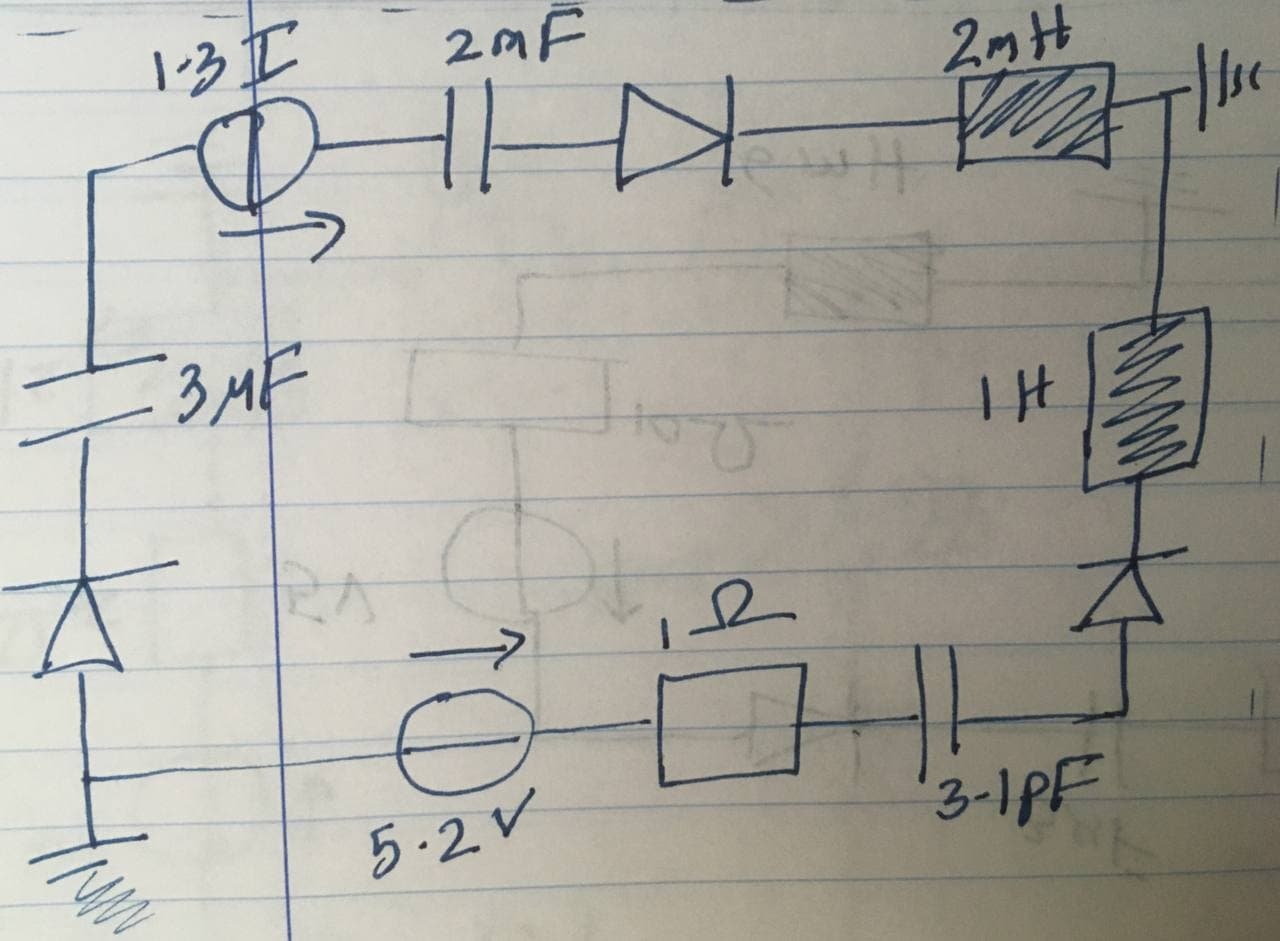 1.3 I
2mF
2mH
3μF
1H
1Ω
5.2V
3.1pF